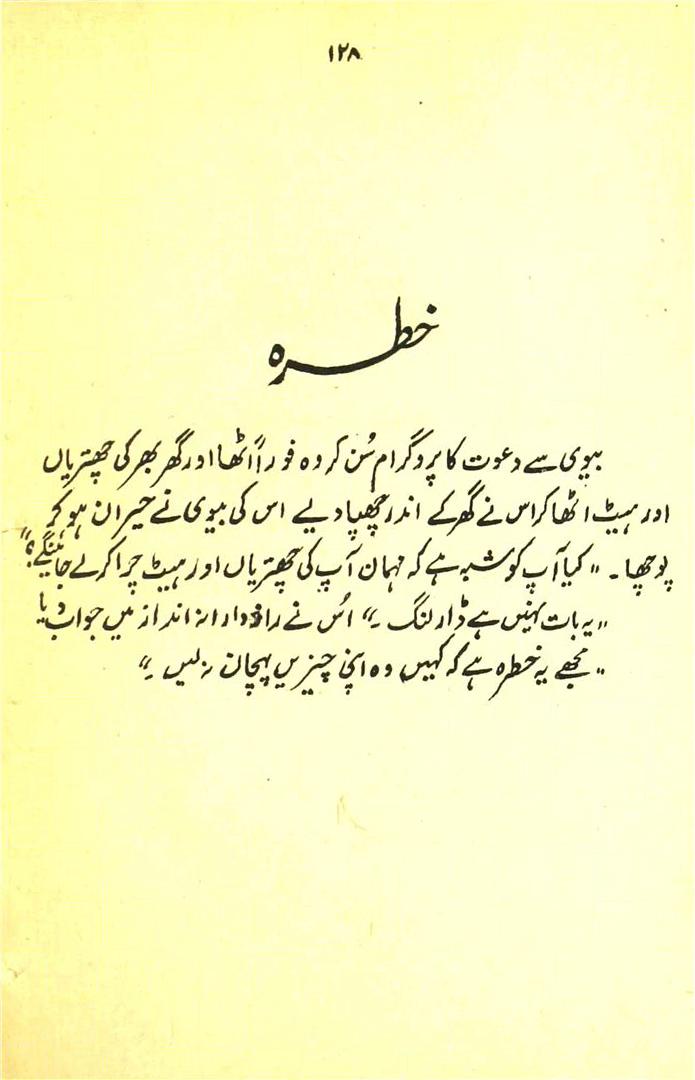 ۱۲۸
خطرہ
بیوی سے دعوت کا پروگرام سُن کر وہ فوراً اُٹھا اور گھر بھر کی چھتریاں
اور ہیٹ اٹھا کر اس نے گھر کے اندر چھپا دیے اس کی بیوی نے حیران ہو کر
پوچھا۔ "کیا آپ کو شبہ ہے کہ مہمان آپ کی چھتریاں اور ہیٹ چرا کر لے جائینگے؟"
"یہ بات نہیں ہے ڈارلنگ۔" اُس نے رازدارانہ انداز میں جواب دیا
"مجھے یہ خطرہ ہے کہ کہیں وہ اپنی چیزیں پہچان نہ لیں۔"